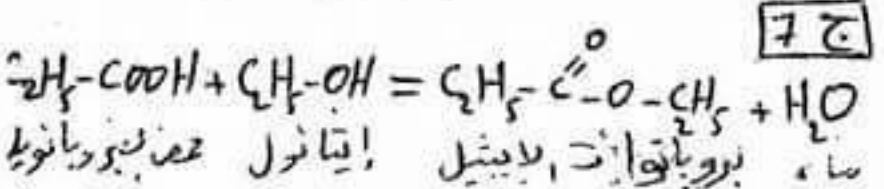 ج 7
C₂H₅-COOH + C₂H₅-OH = C₂H₅-C(=O)-O-C₂H₅ + H₂O
حمض البروبانويك إيثانول بروبانوات الإيثيل ماء